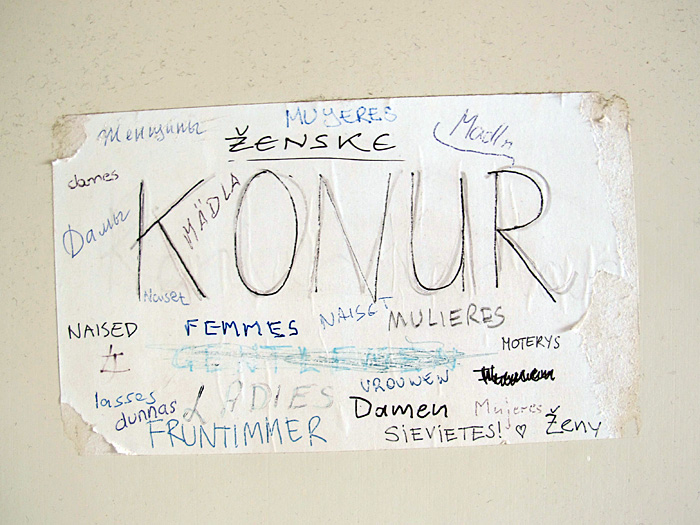 MUJERES
Женщины
ŽENSKE
Madln
dames
MÄDLA
KONUR
Дамы
Naiset
NAISED
FEMMES
NAISET
MULIERES
女
GENTLEMEN
MOTERYS
VROUWEN
lasses
LADIES
dunnas
Damen
Mujeres
FRUNTIMMER
SIEVIETES! ♡
Ženy